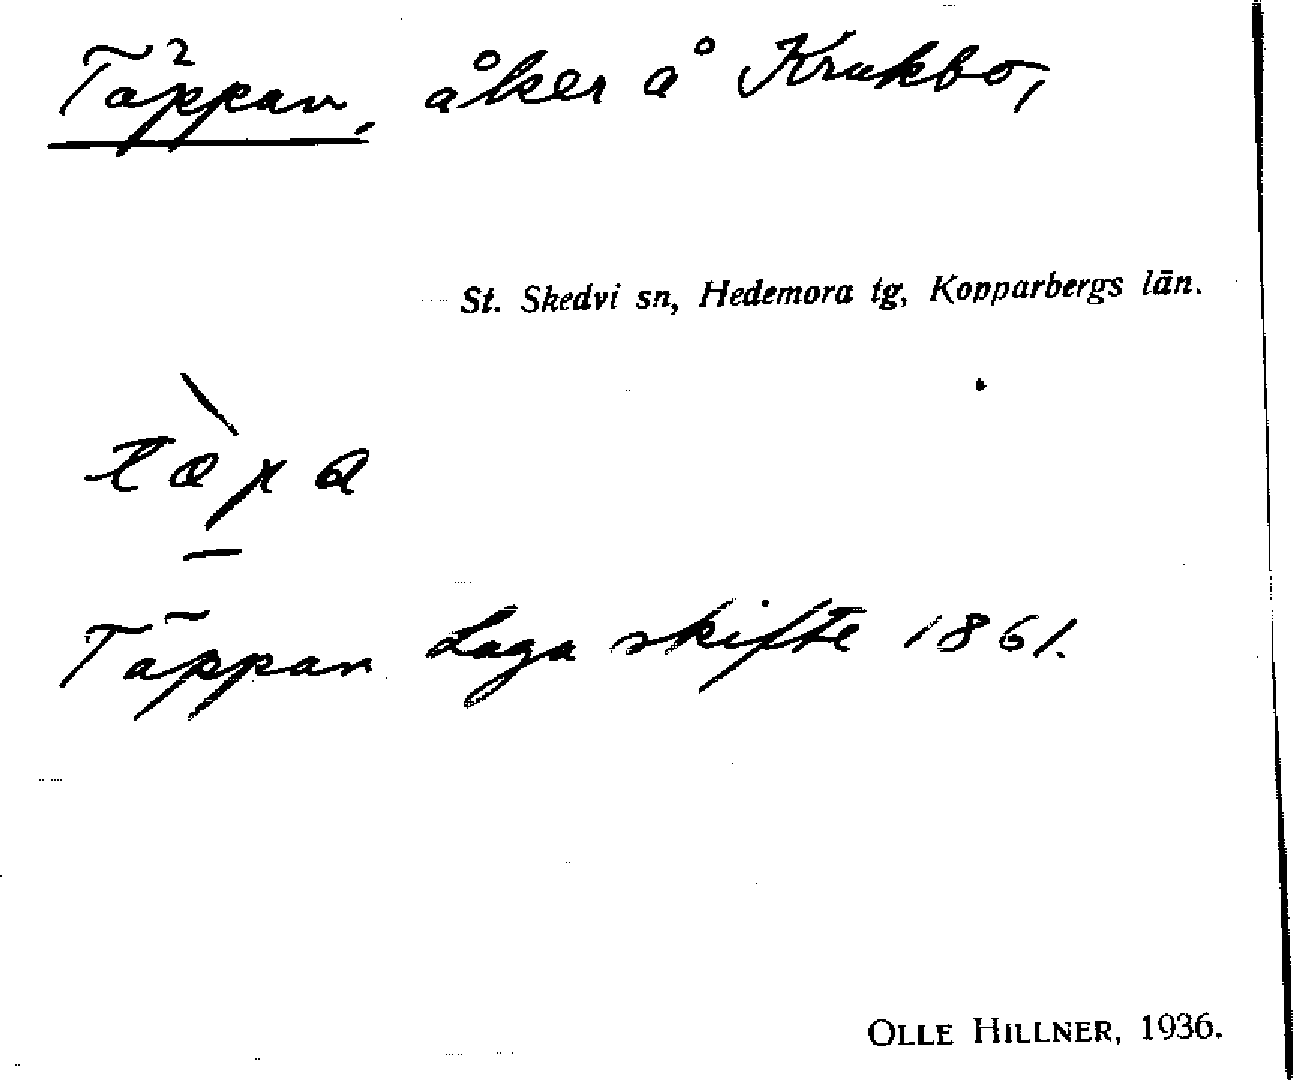 Täppan, åker å Krukbo,
St. Skedvi sn, Hedemora tg, Kopparbergs län.
tæpa
Täppan Laga skifte 1861.
OLLE HILLNER, 1936.